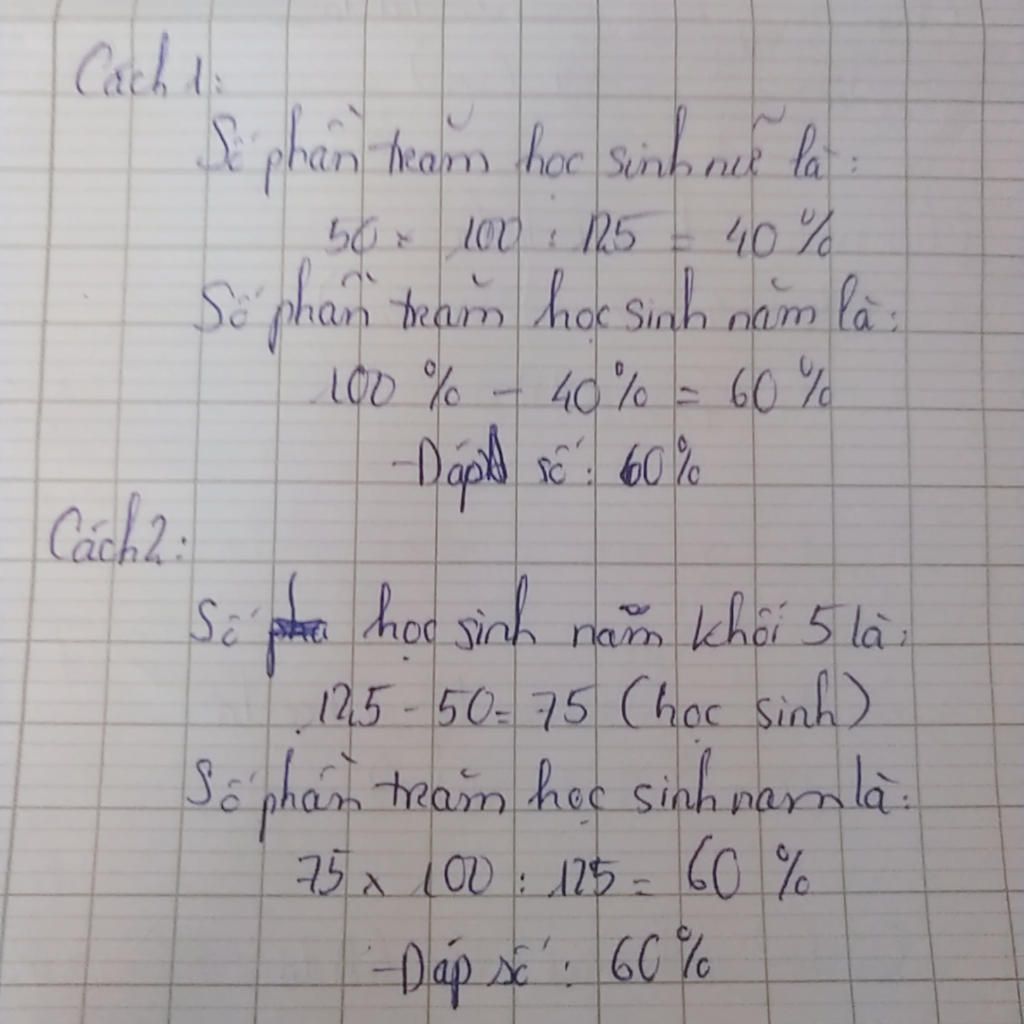 Cách 1:
Số phần trăm học sinh nữ là:
50 × 100 : 125 = 40 %
Số phần trăm học sinh năm là:
100 % - 40 % = 60 %
Đáp số: 60%
Cách 2:
Số học sinh năm khối 5 là:
125 - 50 = 75 (học sinh)
Số phần trăm học sinh nam là:
75 x 100 : 125 = 60 %
Đáp số: 60%